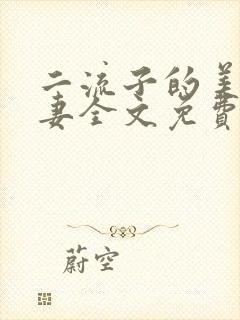 二流子的美
妻全文免費
蔚空